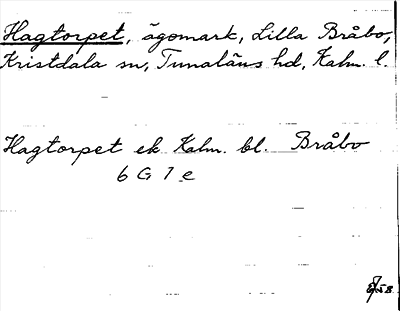 Hagtorpet, ägomark, Lilla Bråbo,
Kristdala sn, Tunaläns hd, Kalm. l.
Hagtorpet ek Kalm. bl. Bråbo
6 G 7 e